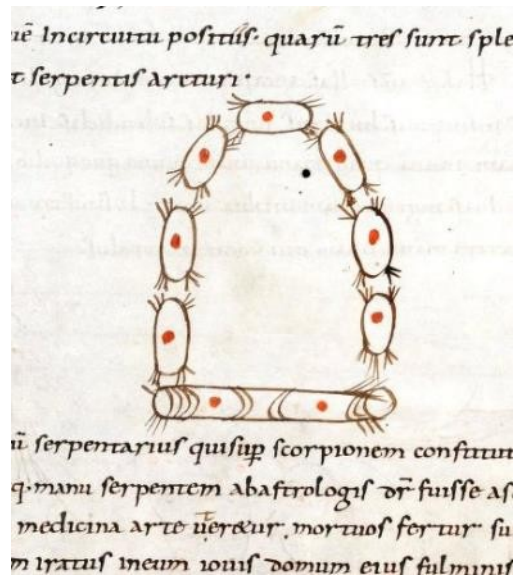 incircuitu positus · quarū tres sunt sple
t serpentis arcturi ·
ū serpentarius quisup scorpionem
q · manu serpentem abastrologis dr̄ fuisse
medicina arte mortuos fertur su
iratus ineum iouis domum eius fulminis